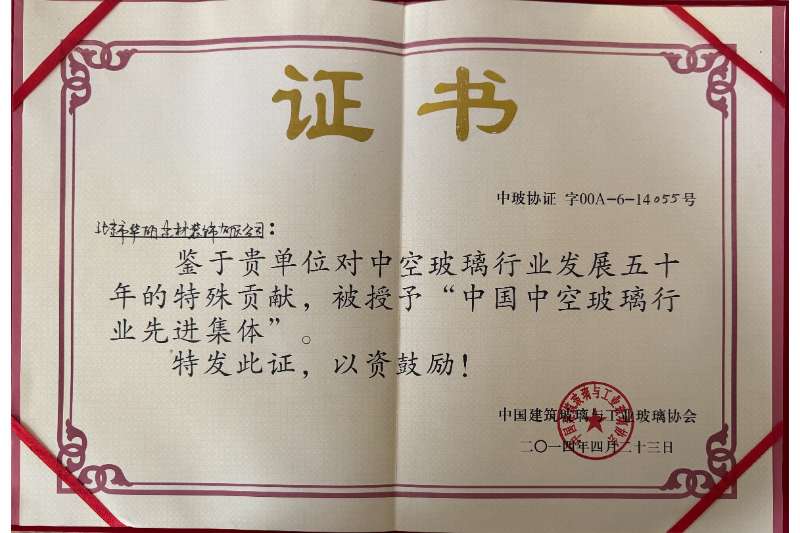 证书
中玻协证 字00A-6-14055号
北京市华明建材装饰有限公司：
鉴于贵单位对中空玻璃行业发展五十
年的特殊贡献，被授予“中国中空玻璃行
业先进集体”。
特发此证，以资鼓励！
中国建筑玻璃与工业玻璃协会
二〇一四年四月二十三日
中国建筑玻璃与工业玻璃协会